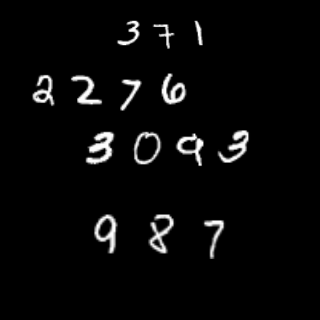 371
2276
3093
987